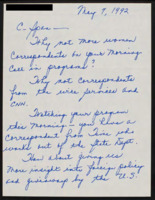 May 9, 1992
C. Span —
Why not more women
Correspondents on your Morning
Call in programs?
Why not correspondents
from the wire services and
CNN.
Watching your program
this morning — you have a
Correspondent from Time who
works out of the State Dept.
How about giving us
more insight into foreign policy
and by the "U.S."